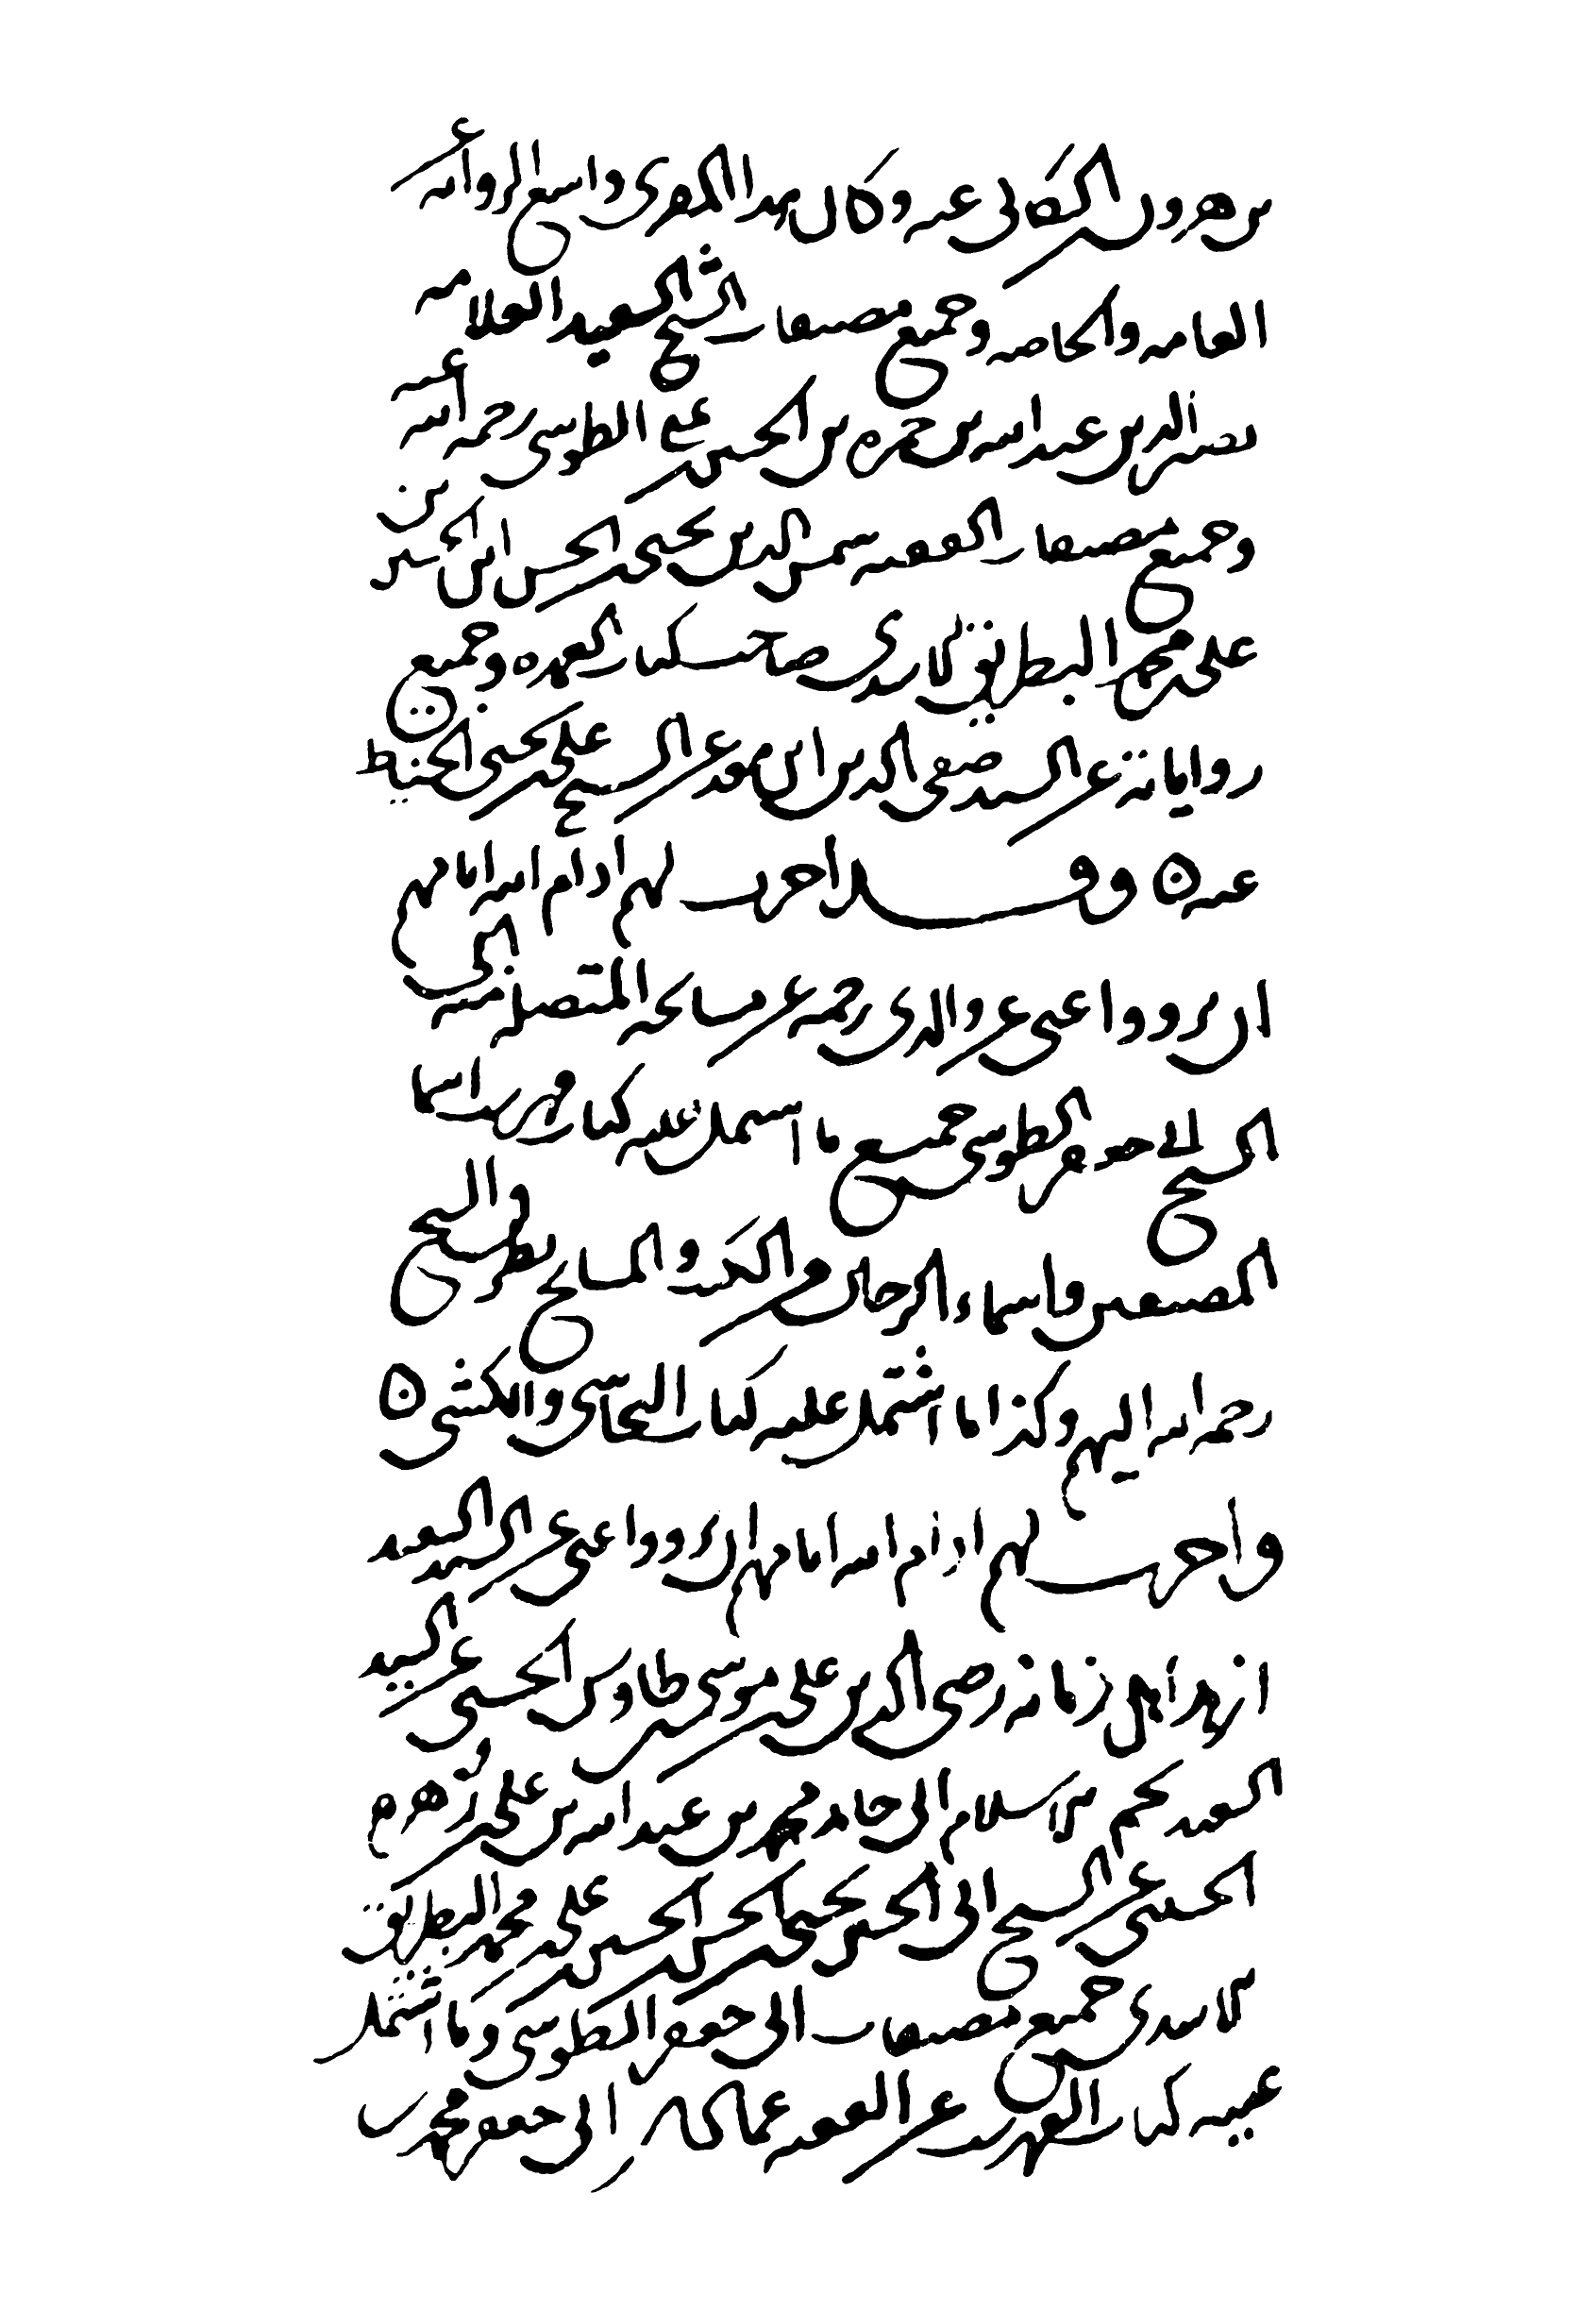 بن هرون الكفائى عنه وكان هذا الكفرى واسع الروايه عن
العامه والخاصه وجميع مصنفات الشيخ السعيد العلامه
نصير الدين عبد الله بن حمزه بن الحسن على الطوسى رحمه الله عنه
وجميع مصنفات الفقيه شمس الدين يحيى بن الحسن ابن الحسين بن
على بن محمد البطريق الاسدى صاحب كتاب العهده وجميع
رواياته عن السيد صفى الدين ابن معد عن الشيخ على بن يحيى الحنيط
عنه ٥ وقد اجزت لهم ادام الله ايامهم
ان يرووا عنى عن والدى رحمه عن مشايخه المتصلة منه الى
الشيخ الى جعفر الطوسى جميع ما اشتمل عليه كتاب فهرست اسما
المصنفين واسماء الرجال والكنى و المشايخ بطرق الشيخ
رحمه الله اليهم وكذا ما اشتمل عليه كتاب النجاشى والكشى ٥
واجزت لهم ادام الله ايامهم ان يرووا عنى عن السيد السعيد
ازهد اهل زمانه رضى الدين على بن موسى بن طاوس الحسنى عن السيد
السعيد محيى الاسلام ابى حامد محمد بن عبد الله بن على بن زهره
الحسينى عن الشيخ ابى الحسين يحيى بن الحسن بن الحسين بن على بن محمد البطريق
الاسدى جميع مصنفات ابى جعفر الطوسى وما اشتمل
عليه كتاب الفهرست عن الفقيه عماد ابى جعفر محمد بن